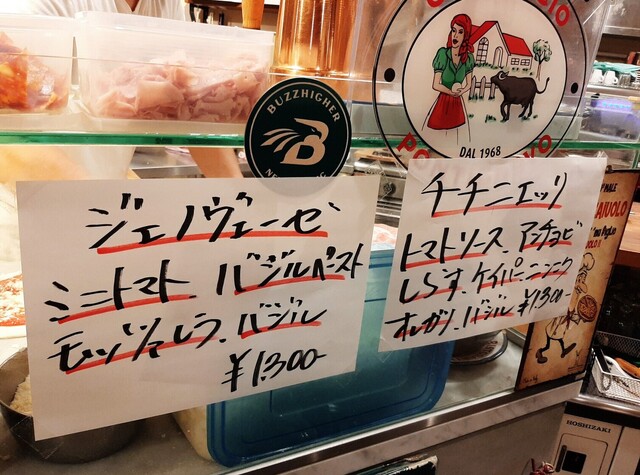 BUZZHIGHER
DAL 1968
ジェノヴェーゼ
ミニトマト、バジルペースト
モッツァレラ、バジル
¥1.300-
チチニエッリ
トマトソース、アチョビ
しらす、ケイパー、ニンニク
オレガノ、バジル ¥1.300-
HOSHIZAKI